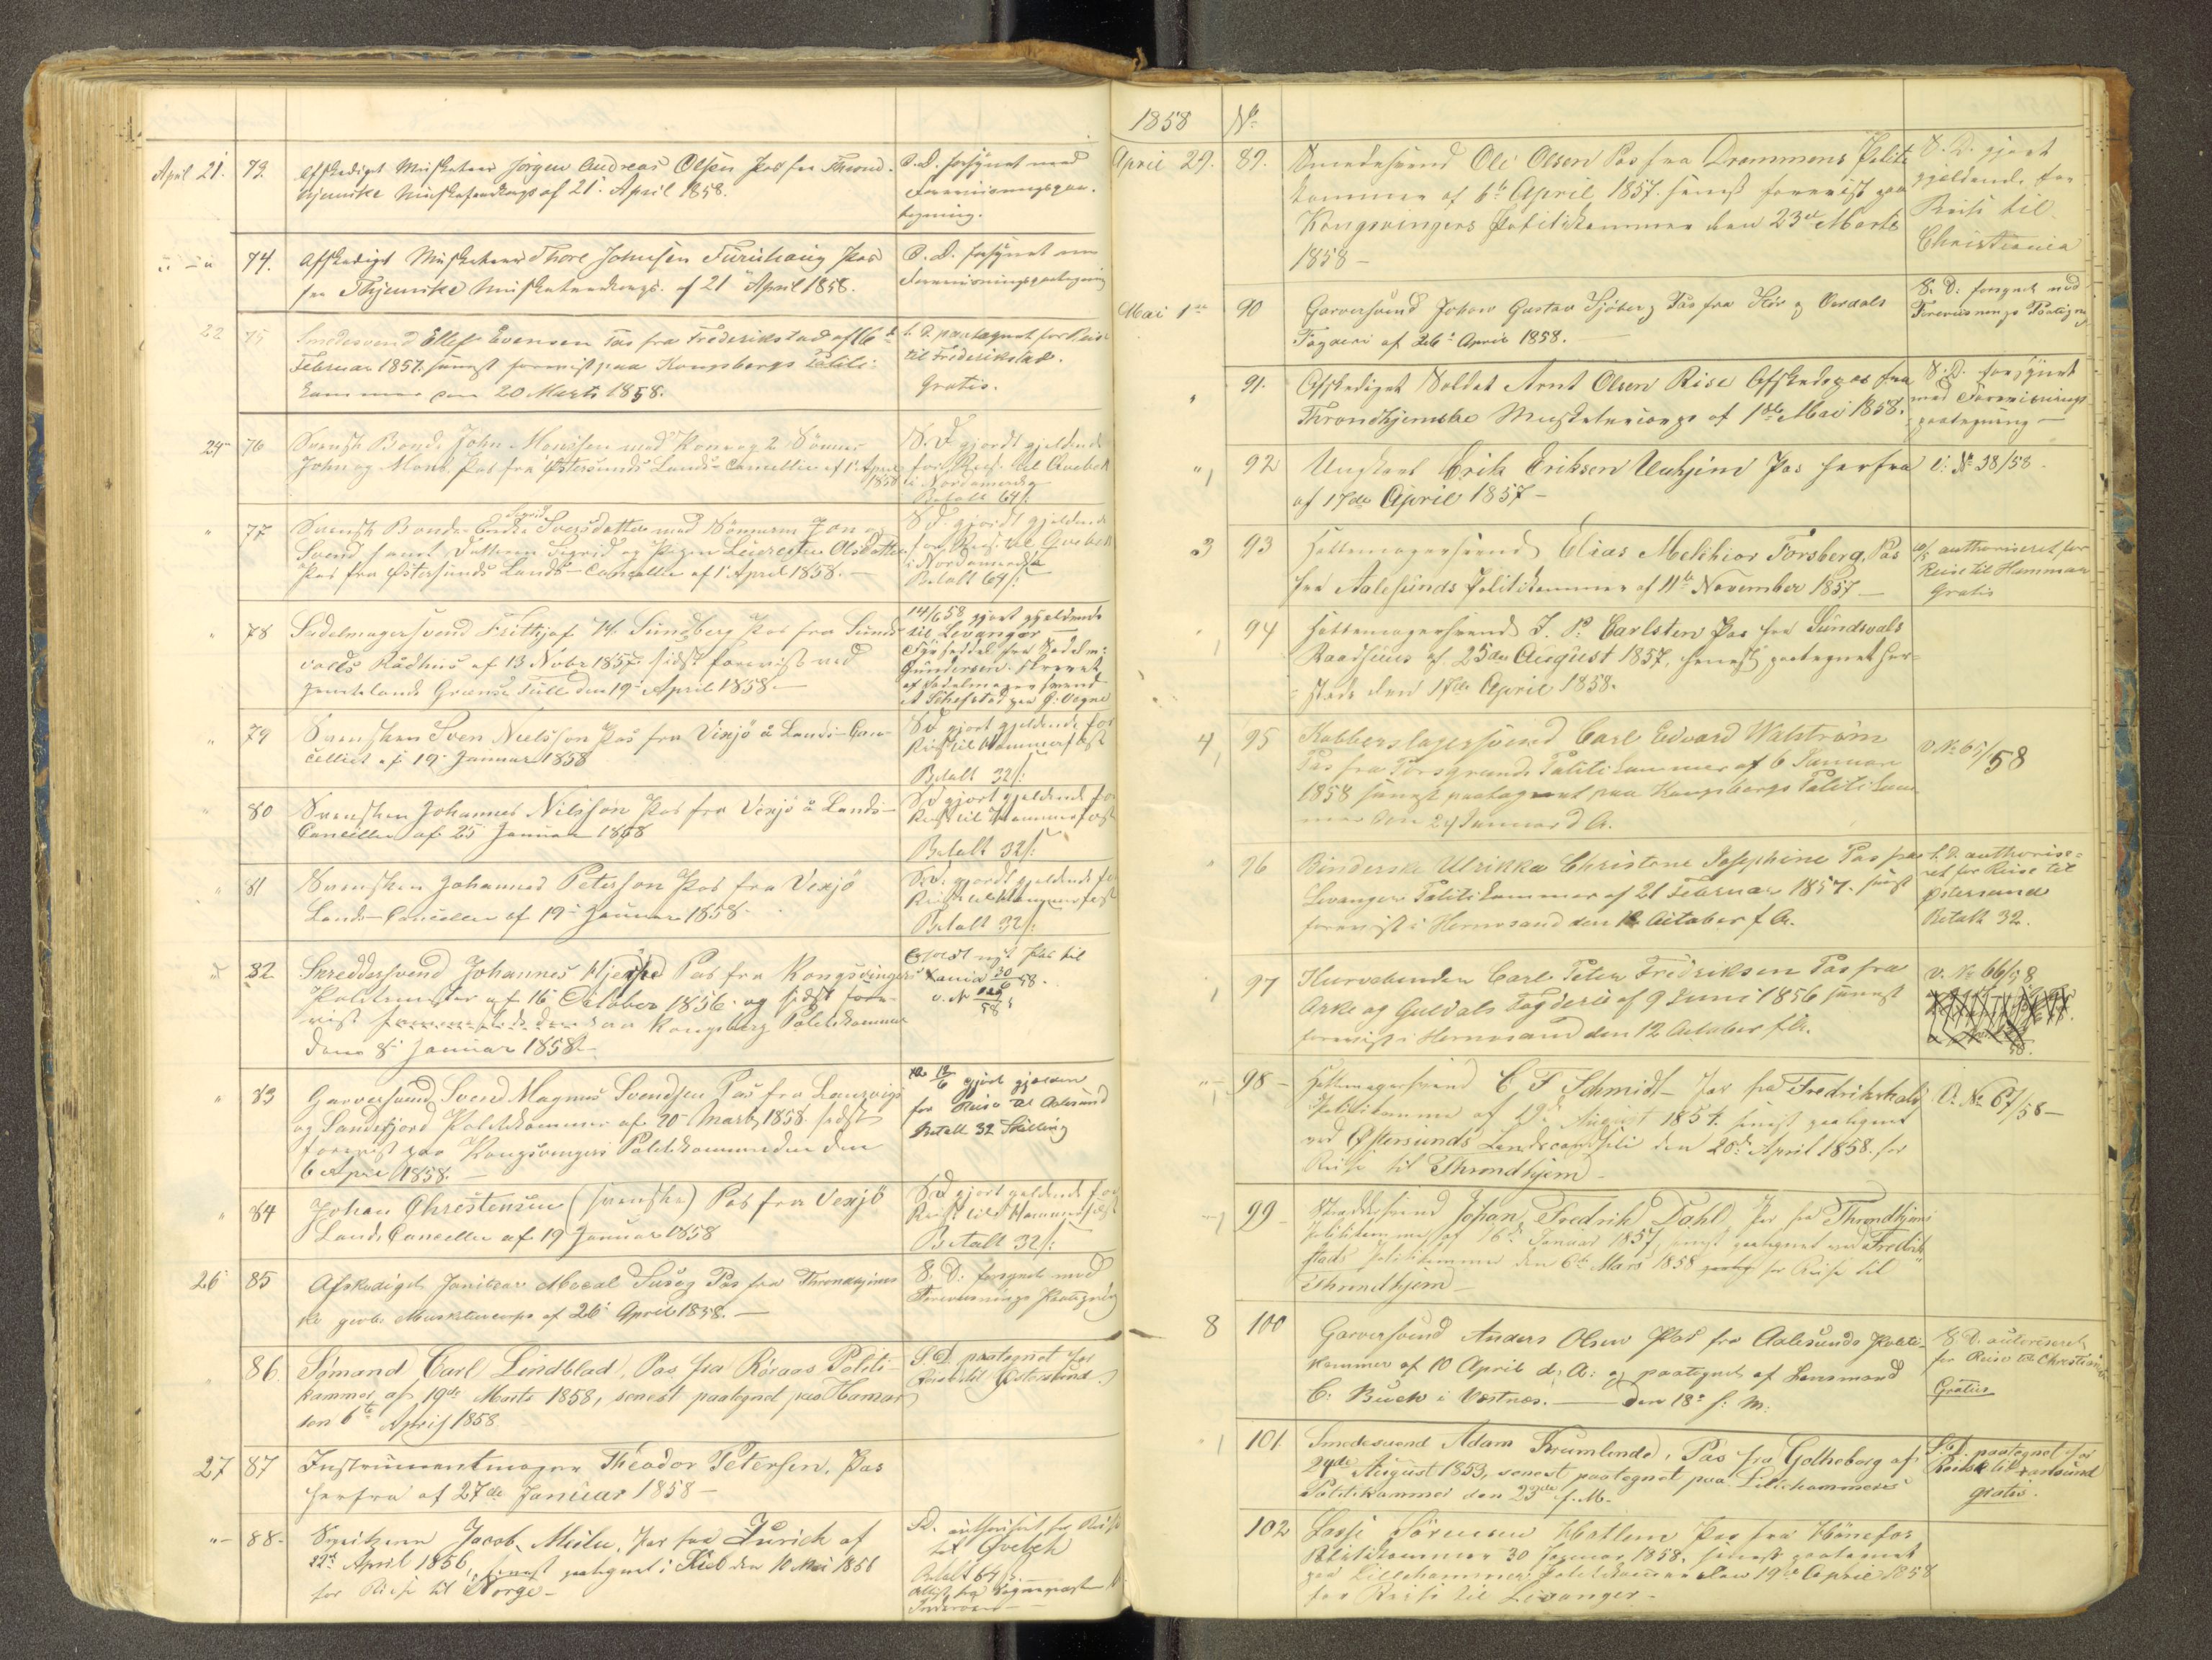 April 21. 73. Afskediget Musketeer Jörgen Andreas Olsen Pas fra Thrond-
hjemske Musketeerkorps af 21. April 1858.
S. D. forsynet med
Forevisningspaa-
tegning.
74. Afskediget Musketeer Thore Johnsen Pas
fra Thjemske Musketeerkorps af 21 April 1858.
S. D. forsynet
Forevisningspaategning
22 75 Smedesvend Ellef Evensen Pas fra Frederikstad af 16d
Februar 1857. senest forevist paa Kongsbergs Politi-
kammer den 20 Marts 1858.
S. D. paategnet for Reise
til Frederikstad.
Gratis.
24 76 Svensk Bonde John Monssen med Kone og 2 Sönner
John og Mons. Pas fra Østersunds Lands-Cancellie af 1. April
1858
S. D. gjordt gjeldende
for Reise til Quebek
i Nordamerika
Betalt 64 s:
77 Svensk Bonde Enke Sigrid Svensdatter med Sönnerne Jon og
Svend samt Datteren Sigrid og Pigen Olsdatter
Pas fra Østersunds Lands-Cancellie af 1 April 1858.
S D. gjordt gjeldende
for Reise til Quebek
i Nordamerika
Betalt 64 s:
78 Sadelmagersvend Frithjof W. Sundberg Pas fra Sunds-
valls Rådhus af 13 Novbr 1857. sidst forevist ved
Jemtelands Grændse Told den 19 April 1858.
14/6 58 gjort gjeldende
til Levanger
79 Svensken Sven Nielsson Pas fra Vexjö å Lands-Can-
celliet af 19 Januar 1858
S D gjort gjeldende for
Reise til Hammerfest
Betalt 32 s:
80 Svensken Johannes Nilsson Pas fra Vexjö å Lands-
Cancellie af 25 Januar 1858
S D gjort gjeldende for
Reise til Hammerfest
Betalt 32 s:
81 Svensken Johannes Peterson Pas fra Vexjö
Lands-Cancellie af 19 Januar 1858.
S. D. gjordt gjeldende for
Reise til Hammerfest
Betalt 32 s:
82 Skreddersvend Johannes Pas fra Kongsvingers
Politimester af 16 October 1856. og sidst fore-
vist paa Kongsberg Politikammer
den 8 Januar 1858
nyt Pas til
30/6 58.
83 Garversvend Svend Magnus Svendsen Pas fra Laurvigs
og Sandefjord Politikammer af 20 Marts 1858 sidst
forevist paa Kongsvingers Politikammer den
6 April 1858.
12/6 gjort gjelden
for Reise til Aalesund
Betalt 32 Skilling
84 Johan Christensen (svenske) Pas fra Vexjö
Lands Cancellie af 19 Januar 1858
S D gjort geldende for
Reise til Hammerfest
Betalt 32 s:
26 85 Afskediget Pas fra Throndhjems-
ke Musketeercorps af 26 April 1858.
S. D. forsynet med
Forevisnings Paategning
86. Sømand Carl Lindblad, Pas fra Röraas Politi-
kammer af 19de Marts 1858, senest paategnet paa Hamar
den 6te April 1858
S. D. paategnet for
Reise til Östersund.
27 87 Instrumentmager Theodor Petersen, Pas
herfra af 27de Januar 1858
88. Sveitseren Jacob Pas fra Zurich af
April 1856, senest paategnet i Kiel den 10 Mai 1856
for Reise til Norge
S D. authoriseret for Reise
til
Betalt 64 s.
1858 No
April 29. 89. Smedesvend Ole Olsen Pas fra Drammens Politi-
kammer af 6te April 1857. senest forevist paa
Kongsvingers Politikammer den 23de Marts
1858
S. D. gjort
gjeldende for
Reise til
Christiania
Mai 1ste 90 Garversvend Johan Gustav Sjöberg Pas fra Stör og Værdals
Fogderi af 26 April 1858.
S. D. forsynet med
Forevisnings Paategning
91. Afskediget Soldat Arnt Olsen Rise Afskedspas fra
Throndhjemske Musketeercorps af 1ste Mai 1858.
S. D. forsynet
med Forevisnings
paategning
92 Ungkarl Erik Eriksen Pas herfra
af 17de April 1857
V: No 38/58.
3 93 Hattemagersvend Elias Melchior Forsberg, Pas
fra Aalesunds Politikammer af 11te November 1857
authoriseret for
Reise til Hammar
Gratis
94 Hattemagersvend J. P. Carlsten Pas fra Sundsvals
Raadhuus af 25de August 1857, senest paategnet her-
steds den 17de April 1858.
4 95 Kobberslagersvend Carl Edvard Walström
Pas fra Porsgrunds Politikammer af 6 Januar
1858 senest paategnet paa Kongsbergs Politikam-
mer den 24 Januar d A.
V. No 65/58
96 Binderske Ulrikka Christane Josephine Pas fra
Levangers Politikammer af 21 Februar 1857. senest
forevist i Hernøsand den 12 October f A.
S. D. authorise-
ret for Reise til
Østersund
Betalt 32.
97 Carl Peter Fredriksen Pas fra
Orke og Guldals Fogderie af 9 Juni 1856 senest
forevist i Hernøsand den 12 October f A.
V. No 66/58
98 Hattemagersvend C F Schmidt Pas fra Fredrikshalds
Politikammer af 19 August 1857. senest paategnet
ved Østersunds Landscanselli den 20de April 1858. for
Reise til Throndhjem
V. No 67/58
99 Skræddersvend Johan Fredrik Dahl, Pas fra Throndhjems
Politikammer af 16de Januar 1857, senest paategnet ved Fredrik-
stads Politikammer den 6te Mars 1858 for Reise til
Throndhjem
8 100 Garversvend Anders Olsen Pas fra Aalesunds Politi-
kammer af 10 April d. A: og paategnet af Lensmand
C: Buck i Vestnæs. den 18de f: M:
S D. autoriseret
for Reise til Christiania
Gratis
101 Smedesvend Adam Krumlinde, Pas fra Gotheborg af
24de August 1853, senest paategnet paa Lillehammers
Politikammer den 23de f. M.
S. D. paategnet for
Reise til
gratis.
102 Lasse Sörensen Pas fra Hönefos
Politikammer 30 Januar 1858, senest paategnet
paa Lillehammers Politikammer den 19de April 1858
for Reise til Levanger